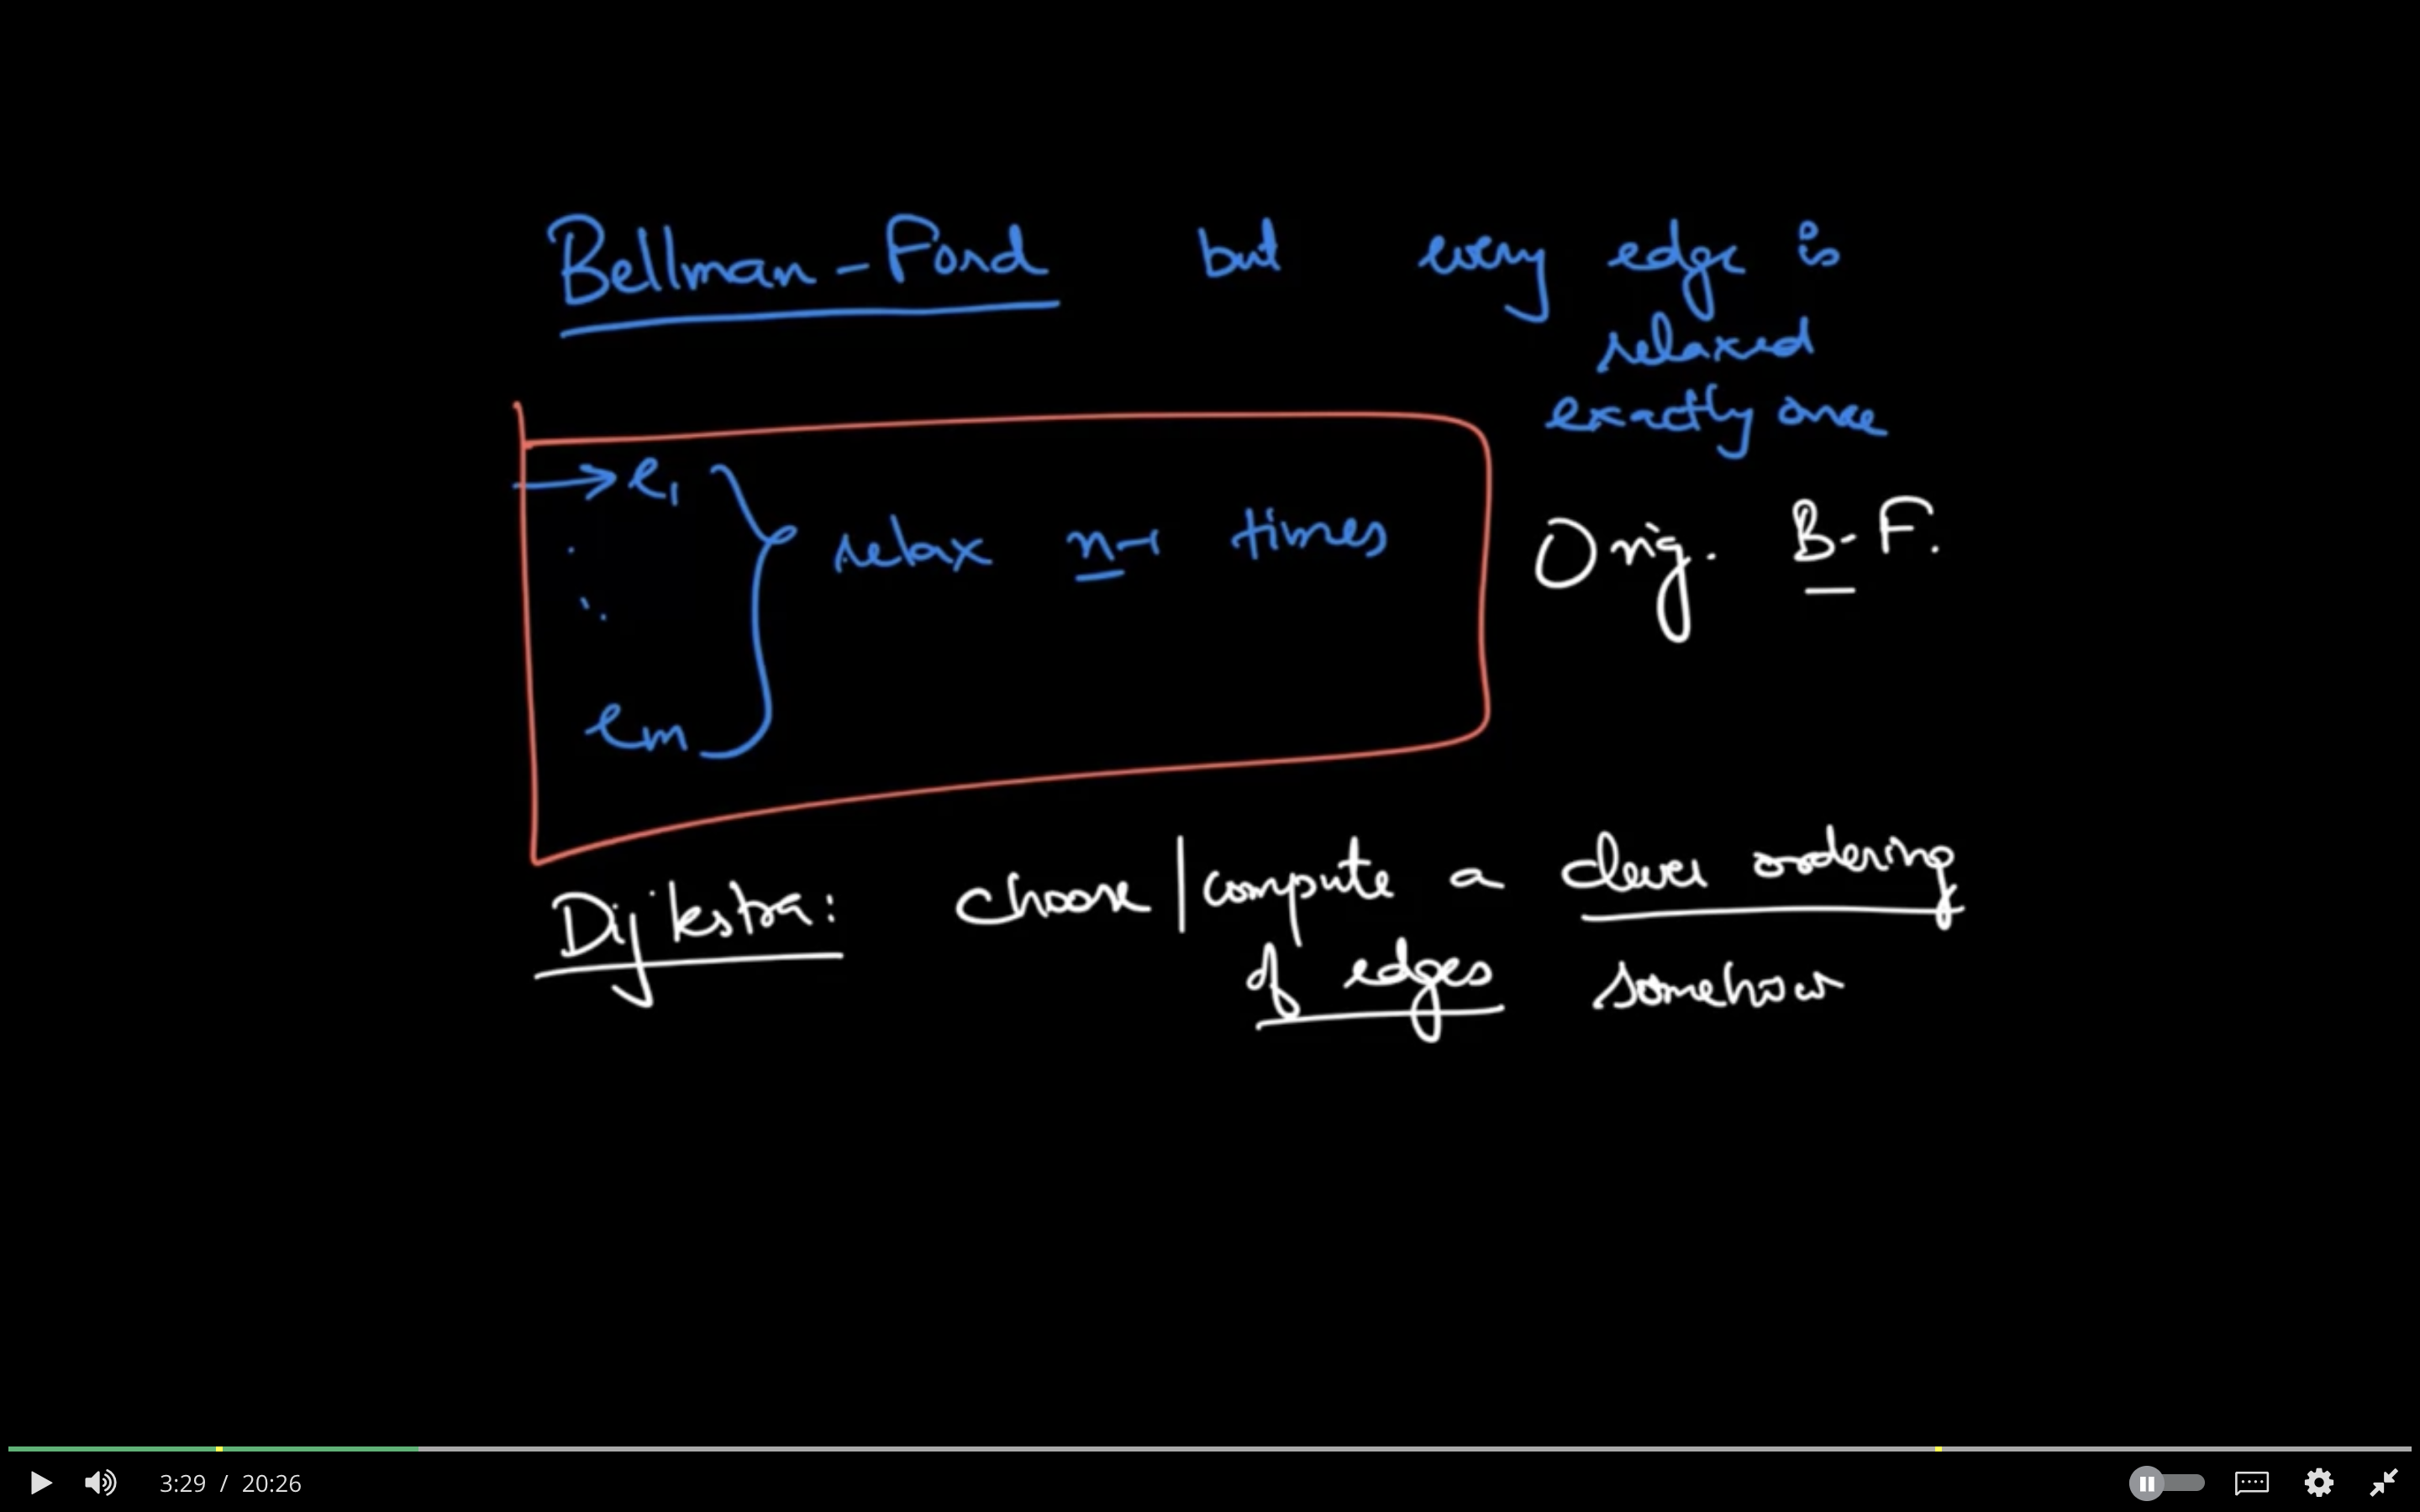 Bellman-Ford but every edge is
relaxed
exactly once
e1
relax n-1 times
Orig. B-F.
em
Dijkstra: choose | compute a clever ordering
of edges somehow
3:29 / 20:26